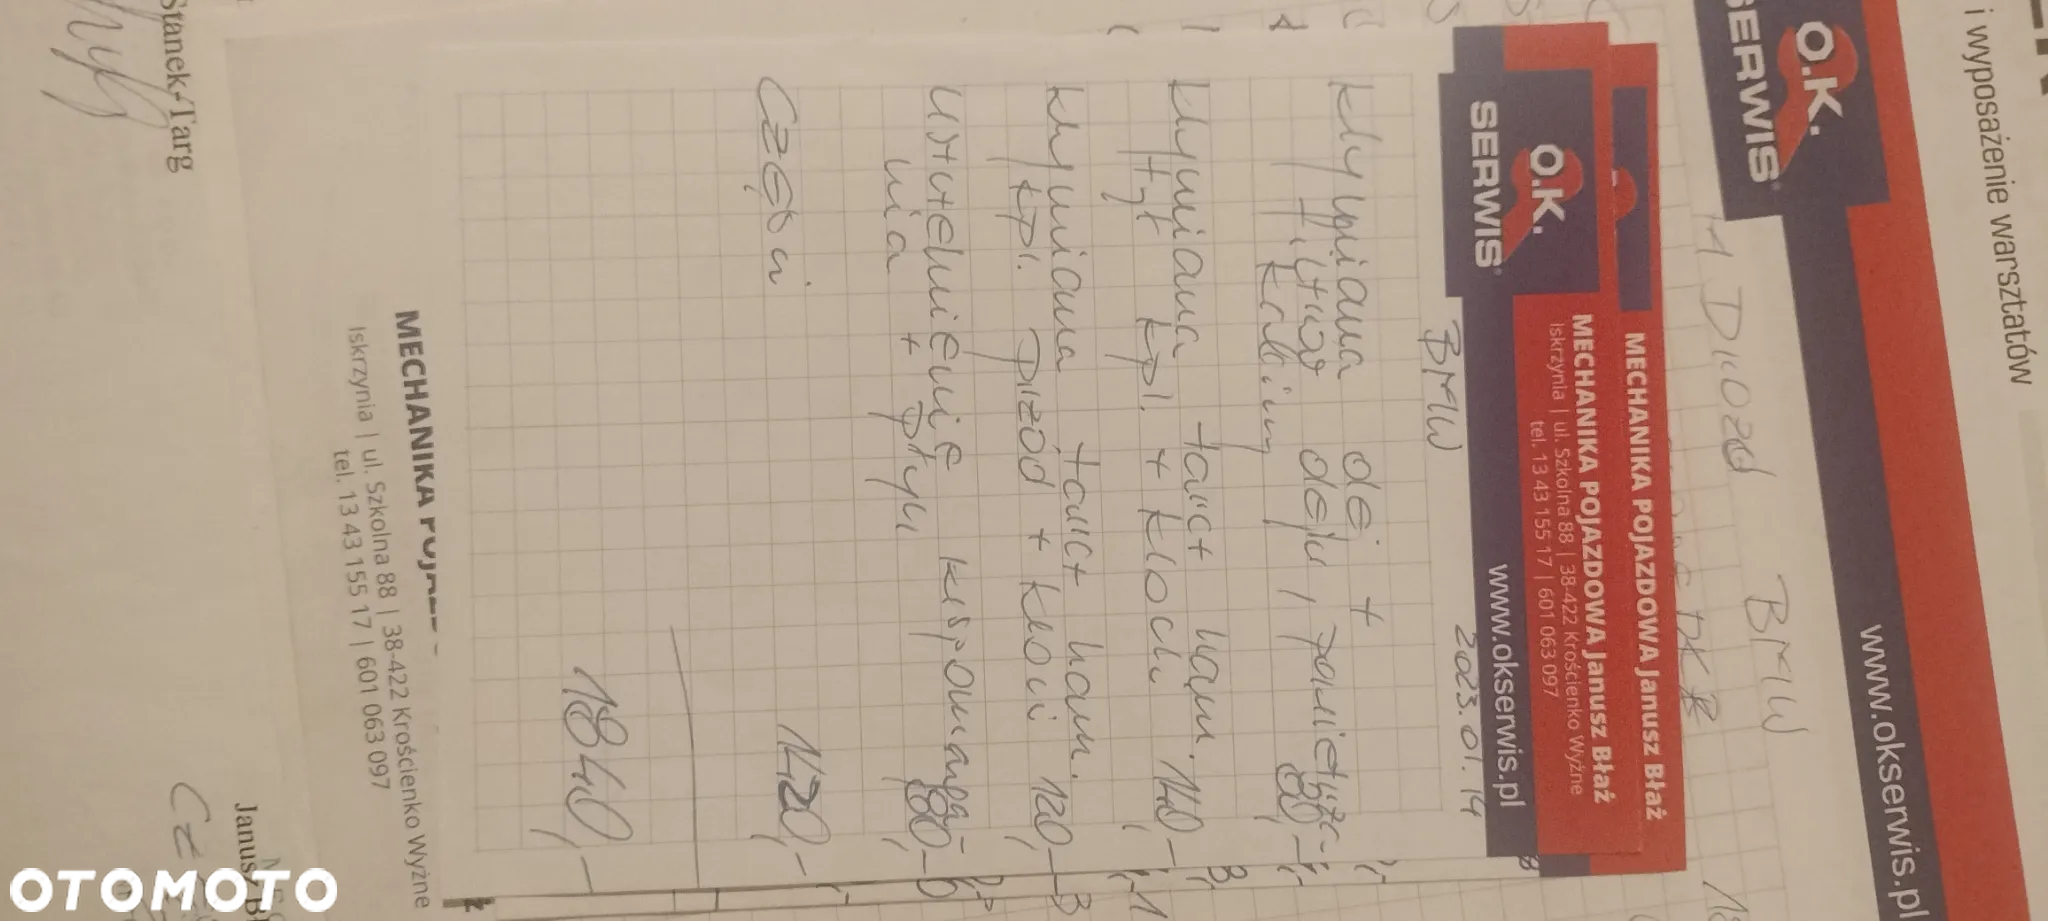 i wyposażenie warsztatów
O.K.
SERWIS
www.okserwis.pl
BMW
MECHANIKA POJAZDOWA Janusz Błaż
O.K.
SERWIS
MECHANIKA POJAZDOWA Janusz Błaż
Iskrzynia | ul. Szkolna 88 | 38-422 Krościenko Wyżne
tel. 13 43 155 17 | 601 063 097
www.okserwis.pl
BMW 2023.01.14
Wymiana olej +
Filtrów oleju, powietrze
kabiny 80,-
Wymiana tarcz ham.
tył kpl. + klocki 140,-
Wymiana tarcz ham.
kpl. przód + kloci 120,-
wspomaga-
nia + płyn 80,-
Części 1420,-
1840,-
MECHANIKA
Iskrzynia | ul. Szkolna 88 | 38-422 Krościenko Wyżne
tel. 13 43 155 17 | 601 063 097
Stanek-Targ
OTOMOTO